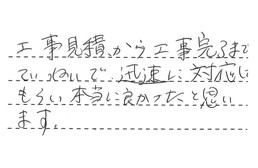 工事見積から工事完了まで
ていねいで、迅速に対応し
もらい本当に良かったと思い
ます。